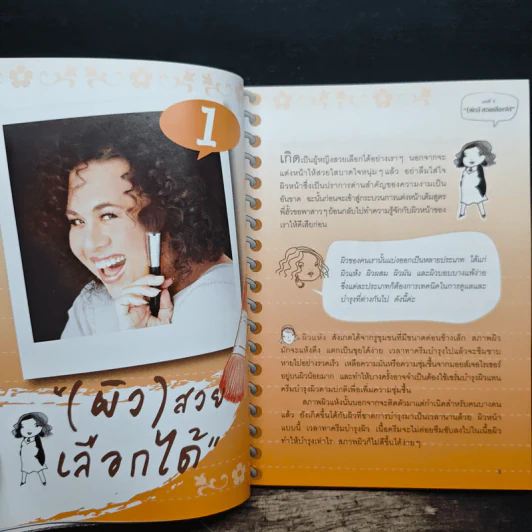 1
"(ผิว) สวย
เลือกได้"
บทที่ 1
"(ผิว) สวยเลือกได้"
เกิดเป็นผู้หญิงสวยเลือกได้อย่างเราๆ นอกจากจะ
แต่งหน้าให้สวยใสบาดใจหนุ่มๆ แล้ว อย่าลืมใส่ใจ
ผิวหน้าซึ่งเป็นปราการด่านสำคัญของความงามเป็น
อันขาด ฉะนั้นก่อนจะเข้าสู่กระบวนการแต่งหน้าเต็มสูตร
พี่อั๋วขอพาสาวๆ ย้อนกลับไปทำความรู้จักกับผิวหน้าของ
เราให้ดีเสียก่อน
ผิวของคนเรานั้นแบ่งออกเป็นหลายประเภท ได้แก่
ผิวแห้ง ผิวผสม ผิวมัน และผิวบอบบางแพ้ง่าย
ซึ่งแต่ละประเภทก็ต้องการเทคนิคในการดูแลและ
บำรุงที่ต่างกันไป ดังนี้ค่ะ
ผิวแห้ง สังเกตได้จากรูขุมขนที่มีขนาดค่อนข้างเล็ก สภาพผิว
มักจะแห้งตึง แตกเป็นขุยได้ง่าย เวลาทาครีมบำรุงไปแล้วจะซึมซาบ
หายไปอย่างรวดเร็ว เหลือความมันหรือความชุ่มชื้นจากมอยส์เจอไรเซอร์
อยู่บนผิวน้อยมาก และทำให้บางครั้งอาจจำเป็นต้องใช้เซรั่มบำรุงผิวแทน
ครีมบำรุงผิวตามปกติเพื่อเพิ่มความชุ่มชื้น
สภาพผิวแห้งนั้นนอกจากจะติดตัวมาแต่กำเนิดสำหรับบางคน
แล้ว ยังเกิดขึ้นได้กับผิวที่ขาดการบำรุงมาเป็นเวลานานด้วย ผิวหน้า
แบบนี้ เวลาทาครีมบำรุงผิว เนื้อครีมจะไม่ค่อยซึมซับลงไปในเนื้อผิว
ทำให้บำรุงเท่าไร สภาพผิวก็ไม่ดีขึ้นได้ง่ายๆ